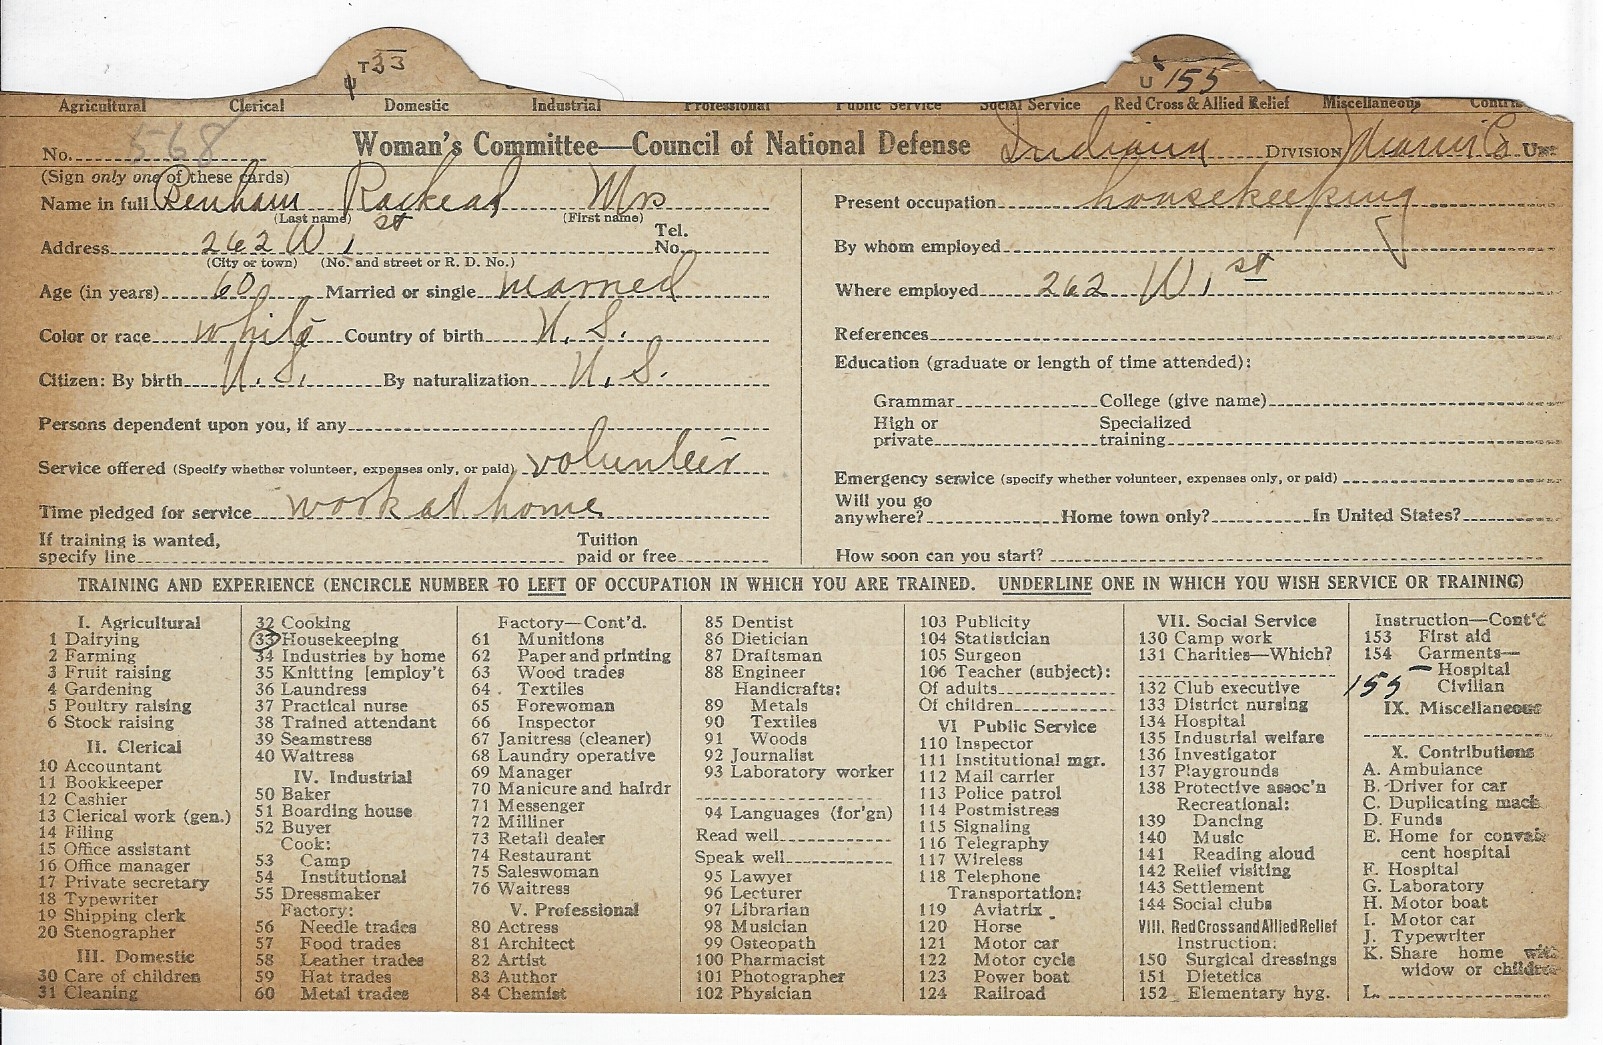 T33
U 155
Agricultural Clerical Domestic Industrial Professional Public Service Social Service Red Cross & Allied Relief Miscellaneous
No. 568 Woman's Committee—Council of National Defense Indiana DIVISION Miami Co
(Sign only one of these cards)
Name in full Benham Racheal Mrs
(Last name) (First name)
Address 262 W 1st Tel. No.
(City or town) (No. and street or R. D. No.)
Age (in years) 60 Married or single married
Color or race white Country of birth U. S.
Citizen: By birth U. S. By naturalization U. S.
Persons dependent upon you, if any
Service offered (Specify whether volunteer, expenses only, or paid) volunteer
Time pledged for service work at home
If training is wanted,
specify line Tuition paid or free
Present occupation housekeeping
By whom employed
Where employed 262 W 1st
References
Education (graduate or length of time attended):
Grammar College (give name)
High or private Specialized training
Emergency service (specify whether volunteer, expenses only, or paid)
Will you go
anywhere? Home town only? In United States?
How soon can you start?
TRAINING AND EXPERIENCE (ENCIRCLE NUMBER TO LEFT OF OCCUPATION IN WHICH YOU ARE TRAINED. UNDERLINE ONE IN WHICH YOU WISH SERVICE OR TRAINING)
I. Agricultural
1 Dairying
2 Farming
3 Fruit raising
4 Gardening
5 Poultry raising
6 Stock raising
II. Clerical
10 Accountant
11 Bookkeeper
12 Cashier
13 Clerical work (gen.)
14 Filing
15 Office assistant
16 Office manager
17 Private secretary
18 Typewriter
19 Shipping clerk
20 Stenographer
III. Domestic
30 Care of children
31 Cleaning
32 Cooking
33 Housekeeping
34 Industries by home
35 Knitting [employ't
36 Laundress
37 Practical nurse
38 Trained attendant
39 Seamstress
40 Waitress
IV. Industrial
50 Baker
51 Boarding house
52 Buyer
Cook:
53 Camp
54 Institutional
55 Dressmaker
Factory:
56 Needle trades
57 Food trades
58 Leather trades
59 Hat trades
60 Metal trades
Factory—Cont'd.
61 Munitions
62 Paper and printing
63 Wood trades
64 Textiles
65 Forewoman
66 Inspector
67 Janitress (cleaner)
68 Laundry operative
69 Manager
70 Manicure and hairdr
71 Messenger
72 Milliner
73 Retail dealer
74 Restaurant
75 Saleswoman
76 Waitress
V. Professional
80 Actress
81 Architect
82 Artist
83 Author
84 Chemist
85 Dentist
86 Dietician
87 Draftsman
88 Engineer
Handicrafts:
89 Metals
90 Textiles
91 Woods
92 Journalist
93 Laboratory worker
94 Languages (for'gn)
Read well
Speak well
95 Lawyer
96 Lecturer
97 Librarian
98 Musician
99 Osteopath
100 Pharmacist
101 Photographer
102 Physician
103 Publicity
104 Statistician
105 Surgeon
106 Teacher (subject):
Of adults
Of children
VI Public Service
110 Inspector
111 Institutional mgr.
112 Mail carrier
113 Police patrol
114 Postmistress
115 Signaling
116 Telegraphy
117 Wireless
118 Telephone
Transportation:
119 Aviatrix
120 Horse
121 Motor car
122 Motor cycle
123 Power boat
124 Railroad
VII. Social Service
130 Camp work
131 Charities—Which?
132 Club executive
133 District nursing
134 Hospital
135 Industrial welfare
136 Investigator
137 Playgrounds
138 Protective assoc'n
Recreational:
139 Dancing
140 Music
141 Reading aloud
142 Relief visiting
143 Settlement
144 Social clubs
VIII. Red Cross and Allied Relief
Instruction:
150 Surgical dressings
151 Dietetics
152 Elementary hyg.
Instruction—Cont'd
153 First aid
154 Garments—
Hospital
155 Civilian
IX. Miscellaneous
X. Contributions
A. Ambulance
B. Driver for car
C. Duplicating mach
D. Funds
E. Home for convales
cent hospital
F. Hospital
G. Laboratory
H. Motor boat
I. Motor car
J. Typewriter
K. Share home with
widow or children
L.